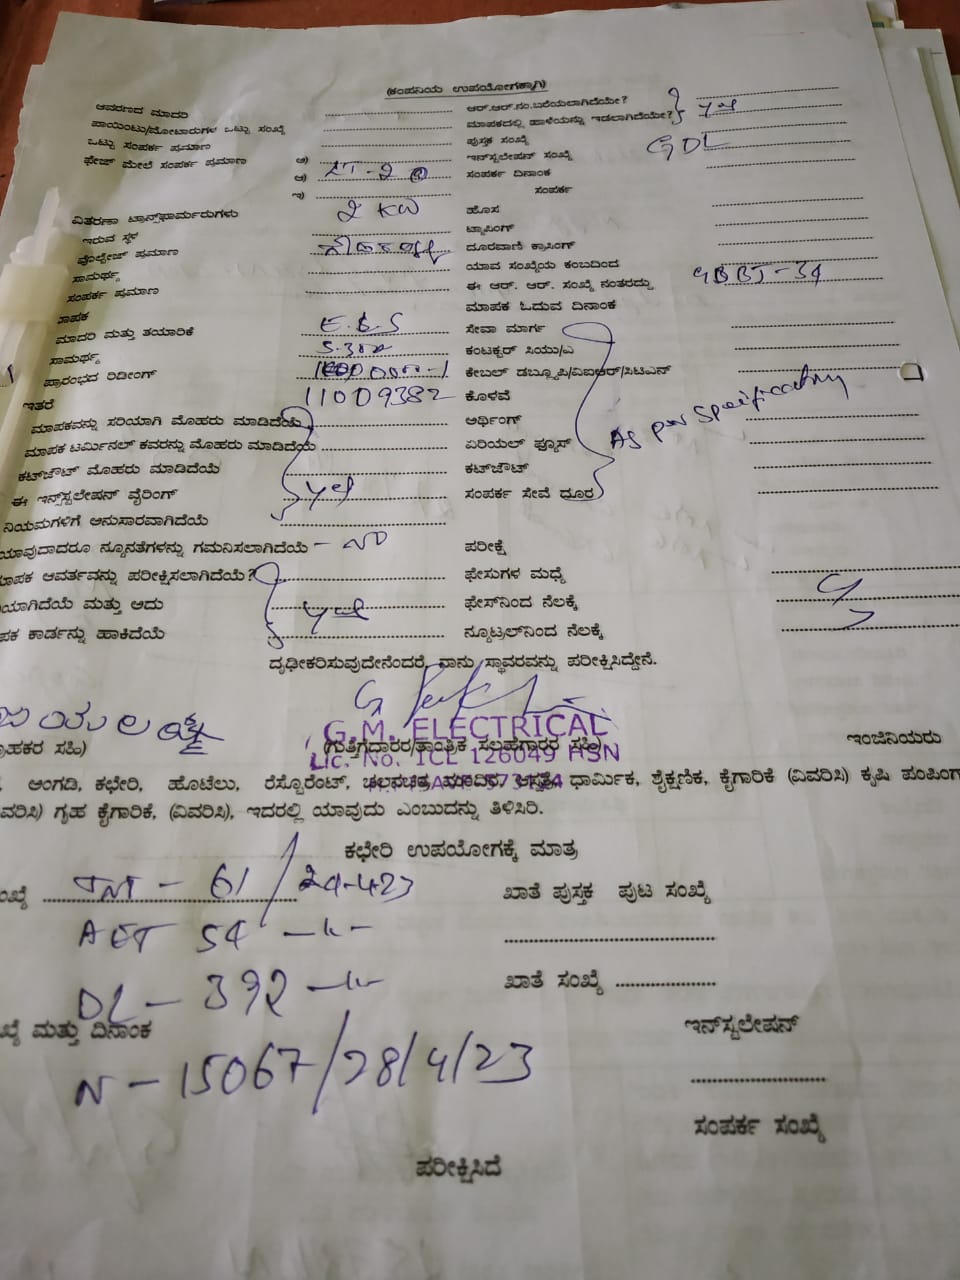 (ಕಂಪನಿಯ ಉಪಯೋಗಕ್ಕಾಗಿ)
ಆವರಣದ ಮಾದರಿ
ಆರ್.ಆರ್.ನಂ.ಬರೆಯಲಾಗಿದೆಯೇ?
ಪಾಯಿಂಟು/ಮೋಟಾರುಗಳ ಒಟ್ಟು ಸಂಖ್ಯೆ
ಮಾಪಕದಲ್ಲಿ ಹಾಳೆಯನ್ನು ಇಡಲಾಗಿದೆಯೇ? yes
ಒಟ್ಟು ಸಂಪರ್ಕ ಪ್ರಮಾಣ
ಪುಸ್ತಕ ಸಂಖ್ಯೆ
ಫೇಜ್ ಮೇಲೆ ಸಂಪರ್ಕ ಪ್ರಮಾಣ ಅ)
ಇನ್‌ಸ್ಟಲೇಷನ್ ಸಂಖ್ಯೆ GDL
ಆ) LT-2
ಸಂಪರ್ಕ ದಿನಾಂಕ
ಇ)
ಸಂಪರ್ಕ
ವಿತರಣಾ ಟ್ರಾನ್ಸ್‌ಫಾರ್ಮರುಗಳು 2 KW
ಹೊಸ
ಇರುವ ಸ್ಥಳ
ಟ್ಯಾಪಿಂಗ್
ವೋಲ್ಟೇಜ್ ಪ್ರಮಾಣ
ದೂರವಾಣಿ ಕ್ರಾಸಿಂಗ್
ಸಾಮರ್ಥ್ಯ
ಯಾವ ಸಂಖ್ಯೆಯ ಕಂಬದಿಂದ
ಸಂಪರ್ಕ ಪ್ರಮಾಣ
ಈ ಆರ್. ಆರ್. ಸಂಖ್ಯೆ ನಂತರದ್ದು
ಮಾಪಕ ಓದುವ ದಿನಾಂಕ
ಮಾದರಿ ಮತ್ತು ತಯಾರಿಕೆ
ಸೇವಾ ಮಾರ್ಗ
ಸಾಮರ್ಥ್ಯ
ಕಂಟಕ್ಟರ್ ಸಿಯು/ಎ
ಪ್ರಾರಂಭದ ರಿಡೀಂಗ್
ಕೇಬಲ್ ಡಬ್ಲ್ಯೂಪಿ/ವಿಐಆರ್/ಸಿಟಿಎಸ್
ಇತರೆ 11009382
ಕೊಳವೆ
ಮಾಪಕವನ್ನು ಸರಿಯಾಗಿ ಮೊಹರು ಮಾಡಿದೆಯೆ
ಅರ್ಥಿಂಗ್
ಮಾಪಕ ಟರ್ಮಿನಲ್ ಕವರನ್ನು ಮೊಹರು ಮಾಡಿದೆಯೆ
ಏರಿಯಲ್ ಫ್ಯೂಸ್ As per
ಕಟ್‌ಔಟ್ ಮೊಹರು ಮಾಡಿದೆಯೆ
ಕಟ್‌ಔಟ್
ಈ ಇನ್‌ಸ್ಟಲೇಷನ್ ವೈರಿಂಗ್ yes
ಸಂಪರ್ಕ ಸೇವೆ ದೂರ
ನಿಯಮಗಳಿಗೆ ಅನುಸಾರವಾಗಿದೆಯೆ
ಯಾವುದಾದರೂ ನ್ಯೂನತೆಗಳನ್ನು ಗಮನಿಸಲಾಗಿದೆಯೆ - NO
ಪರೀಕ್ಷೆ
ಮಾಪಕ ಆವರ್ತವನ್ನು ಪರೀಕ್ಷಿಸಲಾಗಿದೆಯೆ?
ಫೇಸುಗಳ ಮಧ್ಯೆ
ಯಾಗಿದೆಯೆ ಮತ್ತು ಅದು yes
ಫೇಸ್‌ನಿಂದ ನೆಲಕ್ಕೆ
ಪಕ ಕಾರ್ಡನ್ನು ಹಾಕಿದೆಯೆ
ನ್ಯೂಟ್ರಲ್‌ನಿಂದ ನೆಲಕ್ಕೆ
ದೃಢೀಕರಿಸುವುದೇನೆಂದರೆ, ನಾನು ಸ್ಥಾವರವನ್ನು ಪರೀಕ್ಷಿಸಿದ್ದೇನೆ.
G.M. ELECTRICAL
ಗ್ರಾಹಕರ ಸಹಿ)
(ಗುತ್ತಿಗೆದಾರರ/ತಾಂತ್ರಿಕ ಸಲಹೆಗಾರರ ಸಹಿ)
ಇಂಜಿನಿಯರು
Lic. No. ICL 126049 HSN
ಅಂಗಡಿ, ಕಛೇರಿ, ಹೊಟೆಲು, ರೆಸ್ಟೊರೆಂಟ್, ಚಲನಚಿತ್ರ ಮಂದಿರ, ಆಸ್ಪತ್ರೆ, ಧಾರ್ಮಿಕ, ಶೈಕ್ಷಣಿಕ, ಕೈಗಾರಿಕೆ (ವಿವರಿಸಿ) ಕೃಷಿ ಪಂಪಿಂಗ್
ವರಿಸಿ) ಗೃಹ ಕೈಗಾರಿಕೆ, (ವಿವರಿಸಿ), ಇದರಲ್ಲಿ ಯಾವುದು ಎಂಬುದನ್ನು ತಿಳಿಸಿರಿ.
ಕಛೇರಿ ಉಪಯೋಗಕ್ಕೆ ಮಾತ್ರ
ಖ್ಯೆ - 61 / 24-4-23
ಖಾತೆ ಪುಸ್ತಕ ಪುಟ ಸಂಖ್ಯೆ
AET 54 -"-
DL - 392 -"-
ಖಾತೆ ಸಂಖ್ಯೆ
ಖ್ಯೆ ಮತ್ತು ದಿನಾಂಕ
ಇನ್‌ಸ್ಟಲೇಷನ್
N - 15067/28/4/23
ಸಂಪರ್ಕ ಸಂಖ್ಯೆ
ಪರೀಕ್ಷಿಸಿದೆ